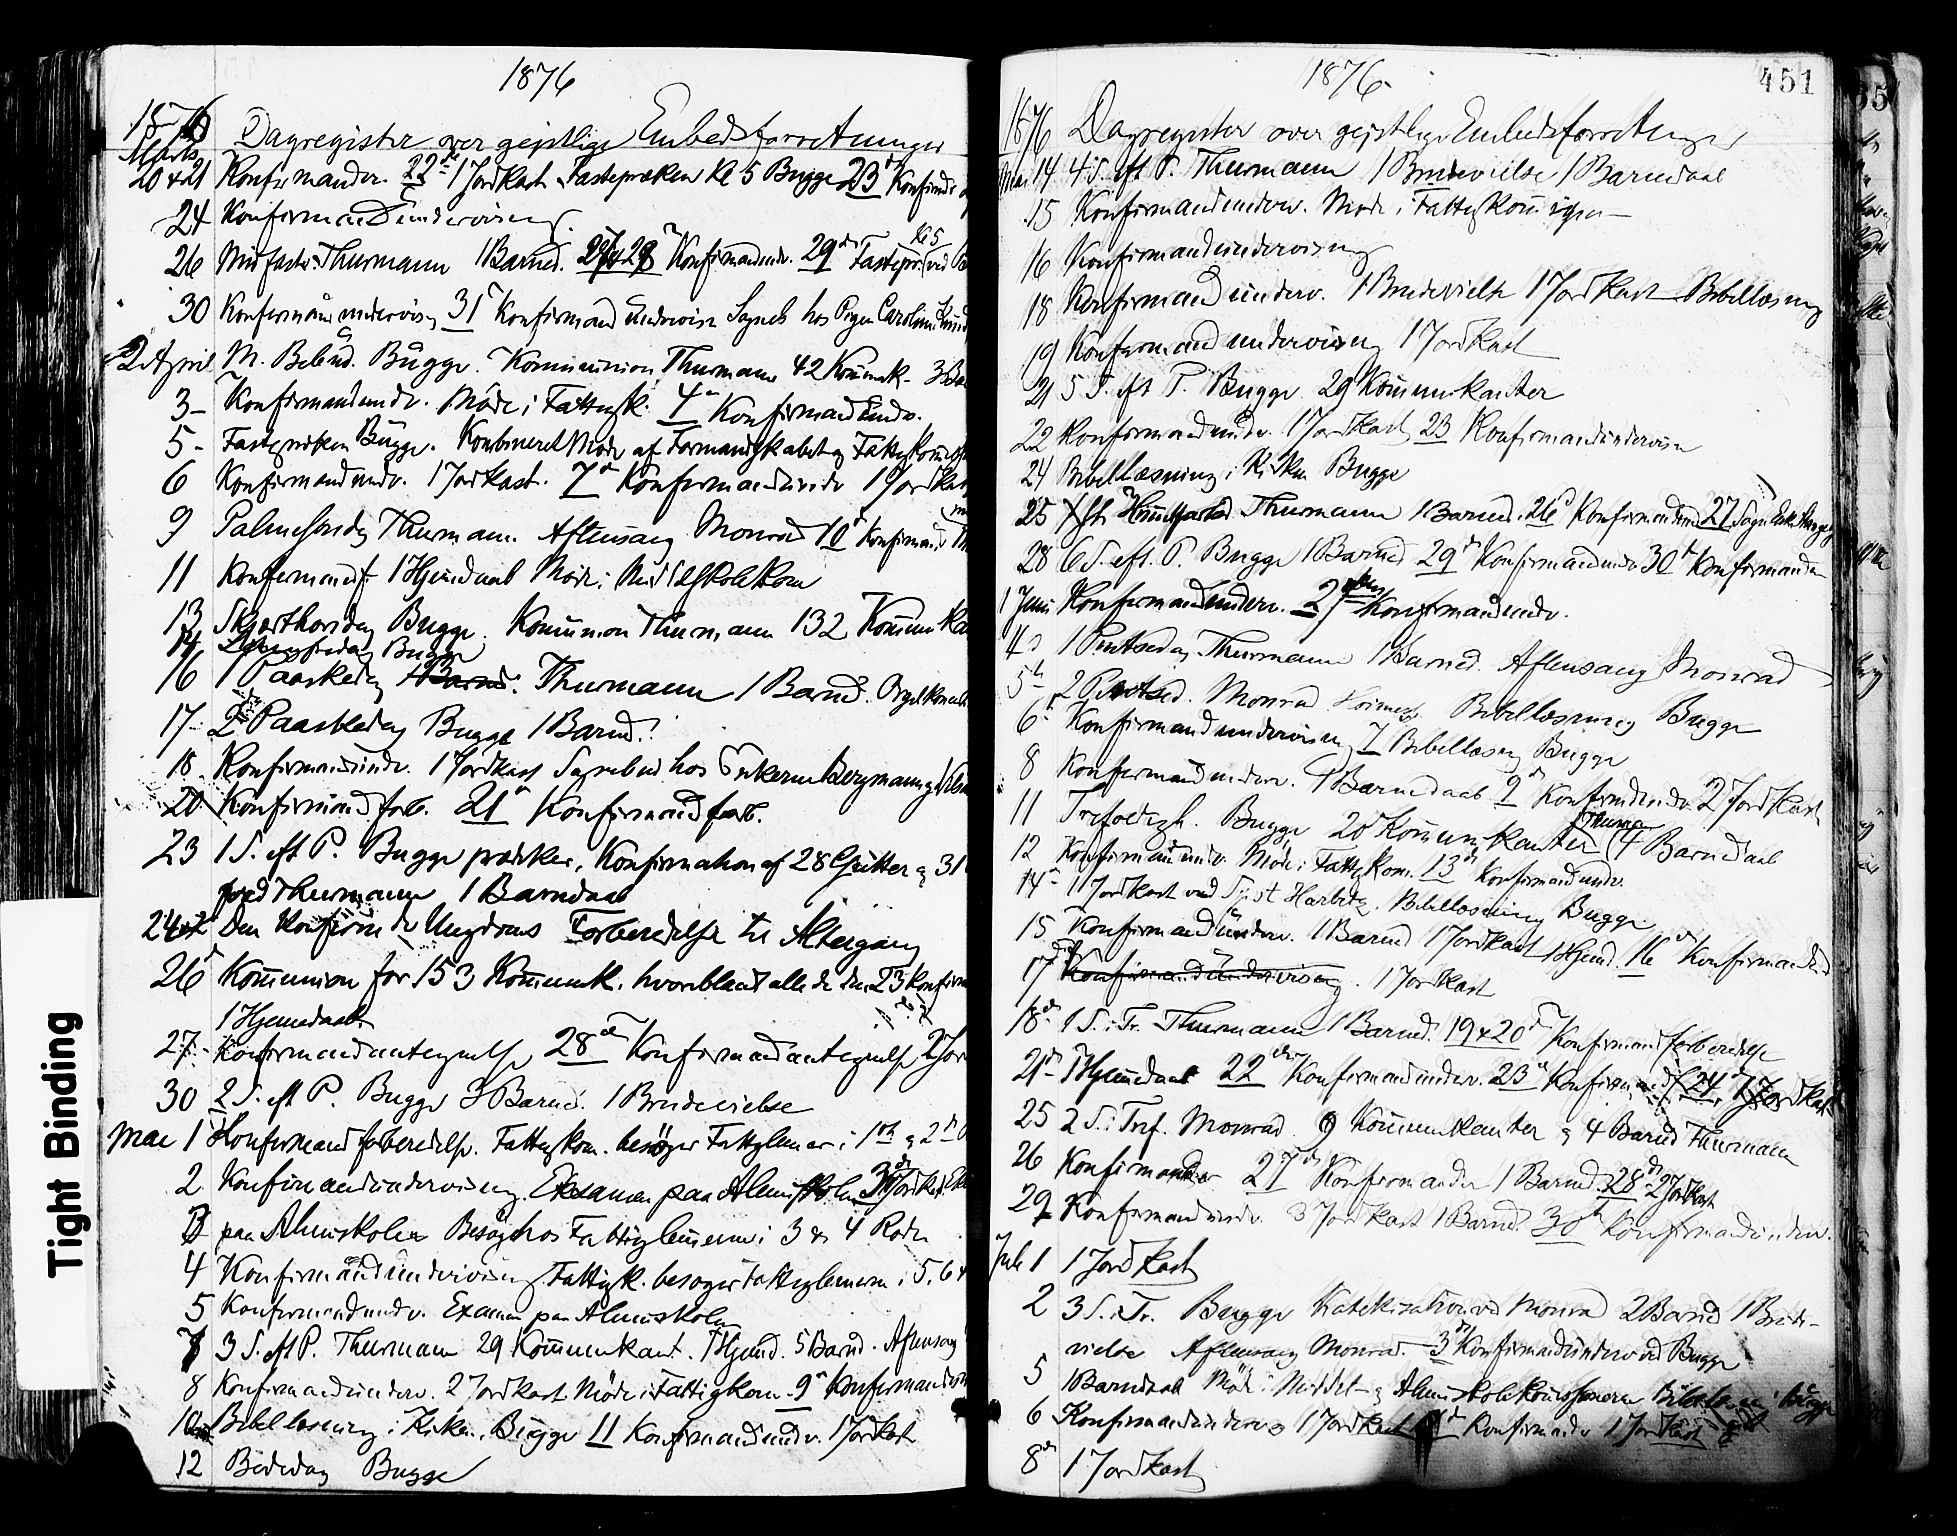 1876
1876 Dagregister over geistlige Embedsforretninger
Marts
20 & 21 Konfirmander. 22de 1 Jordkast Fastepræken Kl 5 Bugge 23d Konfirmd
24 Konfirmandundervisning.
26 Midfaste. Thurmann 1 Barned. 27 & 28 Konfirmandundv. 29de Fastepr. Kl 5
30 Konfirmandundervisn 31d Konfirmand Undervisn Sogneb hos Pigen Caroline
2 April M. Bebud. Bugge. Kommunion Thurmann 42 Kommunik. 3 Ba
3 - Konfirmandundv. Møde i Fattigk. 4de Konfirmandundv.
5 - Fastepræken Bugge. Kombineret Møde af Formandskabet og Fattigkomm
6 Konfirmandundv. 1 Jordkast. 7d Konfirmandundv 1 Jordkast
9 Palmesøndag Thurmann. Aftensang Monrad 10d Konfirmand
11 Konfirmandf. 1 Hjemdaab Møde i Middelskolekom
13 Skjærthorsdag Bugge. Kommunion Thurmann 132 Kommunika
14 Langfredag Bugge
16 1 Paaskedag 1 Barnd. Thurmann 1 Barnd. Orgelkoncert
17 2 Paaskedag Bugge 1 Barnd.
18 Konfirmandundv. 1 Jordkast Sognebud hos Enkerne Bergmann og
20 Konfirmand forb. 21d Konfirmand forb.
23 1 S. eft P. Bugge prædiker, Konfirmation af 28 Gutter og 31
ved Thurmann 1 Barndaab
24 Den Konfirmde Ungdoms Forberedelse til Altergang
26d Kommunion for 153 Kommunik. hvoriblandt alle de den 23 konfirm
1 Hjemdaab
27 - Konfirmandantegnelse 28de Konfirmandantegnelse 2 Jor
30 2 S. eft P. Bugge 3 Barnd. 1 Brudevielse
Mai 1 Konfirmandforberedelse. Fattigkom. besøger Fattiglemmer i 1ste og 2d
2 Konfirmandundervisning. Examen paa Almuskolen 3d Jordkast
3 paa Almuskolen Besøg hos Fattiglemmerne i 3 & 4 Rode
4 Konfirmandundervisning Fattigk. besøger Fattiglemmerne i 5, 6 &
5 Konfirmandundv. Examen paa Almuskolen
7 3 S. eft P. Thurmann 29 Kommunikant. 1 Hjemd. 5 Barnd. Aftensang
8 Konfirmandunderv. 2 Jordkast. Møde i Fattigkom. 9d Konfirmandun
10 Bibellæsning i Kirken. Bugge 11 Konfirmandundv. 1 Jordkast
12 Bededag Bugge
451
1876
1876 Dagregister over geistlige Embedsforretninger
Mai 14 4 S. eft P. Thurmann 1 Brudevielse 1 Barndaab
15 Konfirmandunderv. Møde i Fattigkommission
16 Konfirmandundervisning
18 Konfirmandunderv. 1 Brudevielse 1 Jordkast Bibellæsning
19 Konfirmandundervisning 1 Jordkast
21 5 S. eft P. Bugge 29 Kommunikanter
22 Konfirmandundv. 1 Jordkast 23 Konfirmandundervisn
24 Bibellæsning i Kirken Bugge
25 Kr. Himmelfartsd. Thurmann 1 Barnd. 26d Konfirmandund 27
28 6 S. eft. P. Bugge 1 Barnd 29d Konfirmandundv 30d Konfirmandun
1 Juni Konfirmandunderv. 2den Konfirmandundv.
4d 1 Pintsedag Thurmann 1 Barned. Aftensang Monrad
5te 2 Pintsed. Monrad Høimesse Bibellæsning Bugge
6te Konfirmandundervisning 7 Bibellæsn Bugge
8 Konfirmandunderv. 1 Barndaab 9d Konfirmdundv. 2 Jordkast
11 Trefoldigh. Bugge 20 Kommunikanter (Thurma 4 Barndaab
12 Konfirmandundv. Møde i Fattigkom. 13de Konfirmandundv.
14de 1 Jordkast ved Sgpst Harbitz. Bibellæsning Bugge
15 Konfirmandunderv. 1 Barnd 1 Jordkast 1 Hjemd. 16de Konfirmandund
17de Konfirmandundervisning. 1 Jordkast
18de 1 S. i Tr. Thurmann 1 Barnd. 19 & 20de Konfirmandforberedelse
21de 1 Hjemdaab 22de Konfirmandunderv. 23d Konfirmandf 24 1 Jordkast
25 2 S. i Tref. Monrad 9 Kommunikanter og 4 Barnd Thurmann
26 Konfirmander 27de Konfirmander 1 Barnd 28de 2 Jordkast
29 Konfirmandundv. 3 Jordkast 1 Barnd. 30te Konfirmandunderv.
Juli 1 1 Jordkast
2 3 S. i Tr. Bugge Katekisation ved Monrad 2 Barnd 1 Brude-
vielse Aftensang Monrad. 3de Konfirmandunderv ved Bugge
5 1 Barndaab Møde i Middel- og Almueskolekommissionerne Bibellæsn. Bugge
6 Konfirmandunderv 1 Jordkast 7de Konfirmandv 1 Jordkast
8de 1 Jordkast
Tight Binding